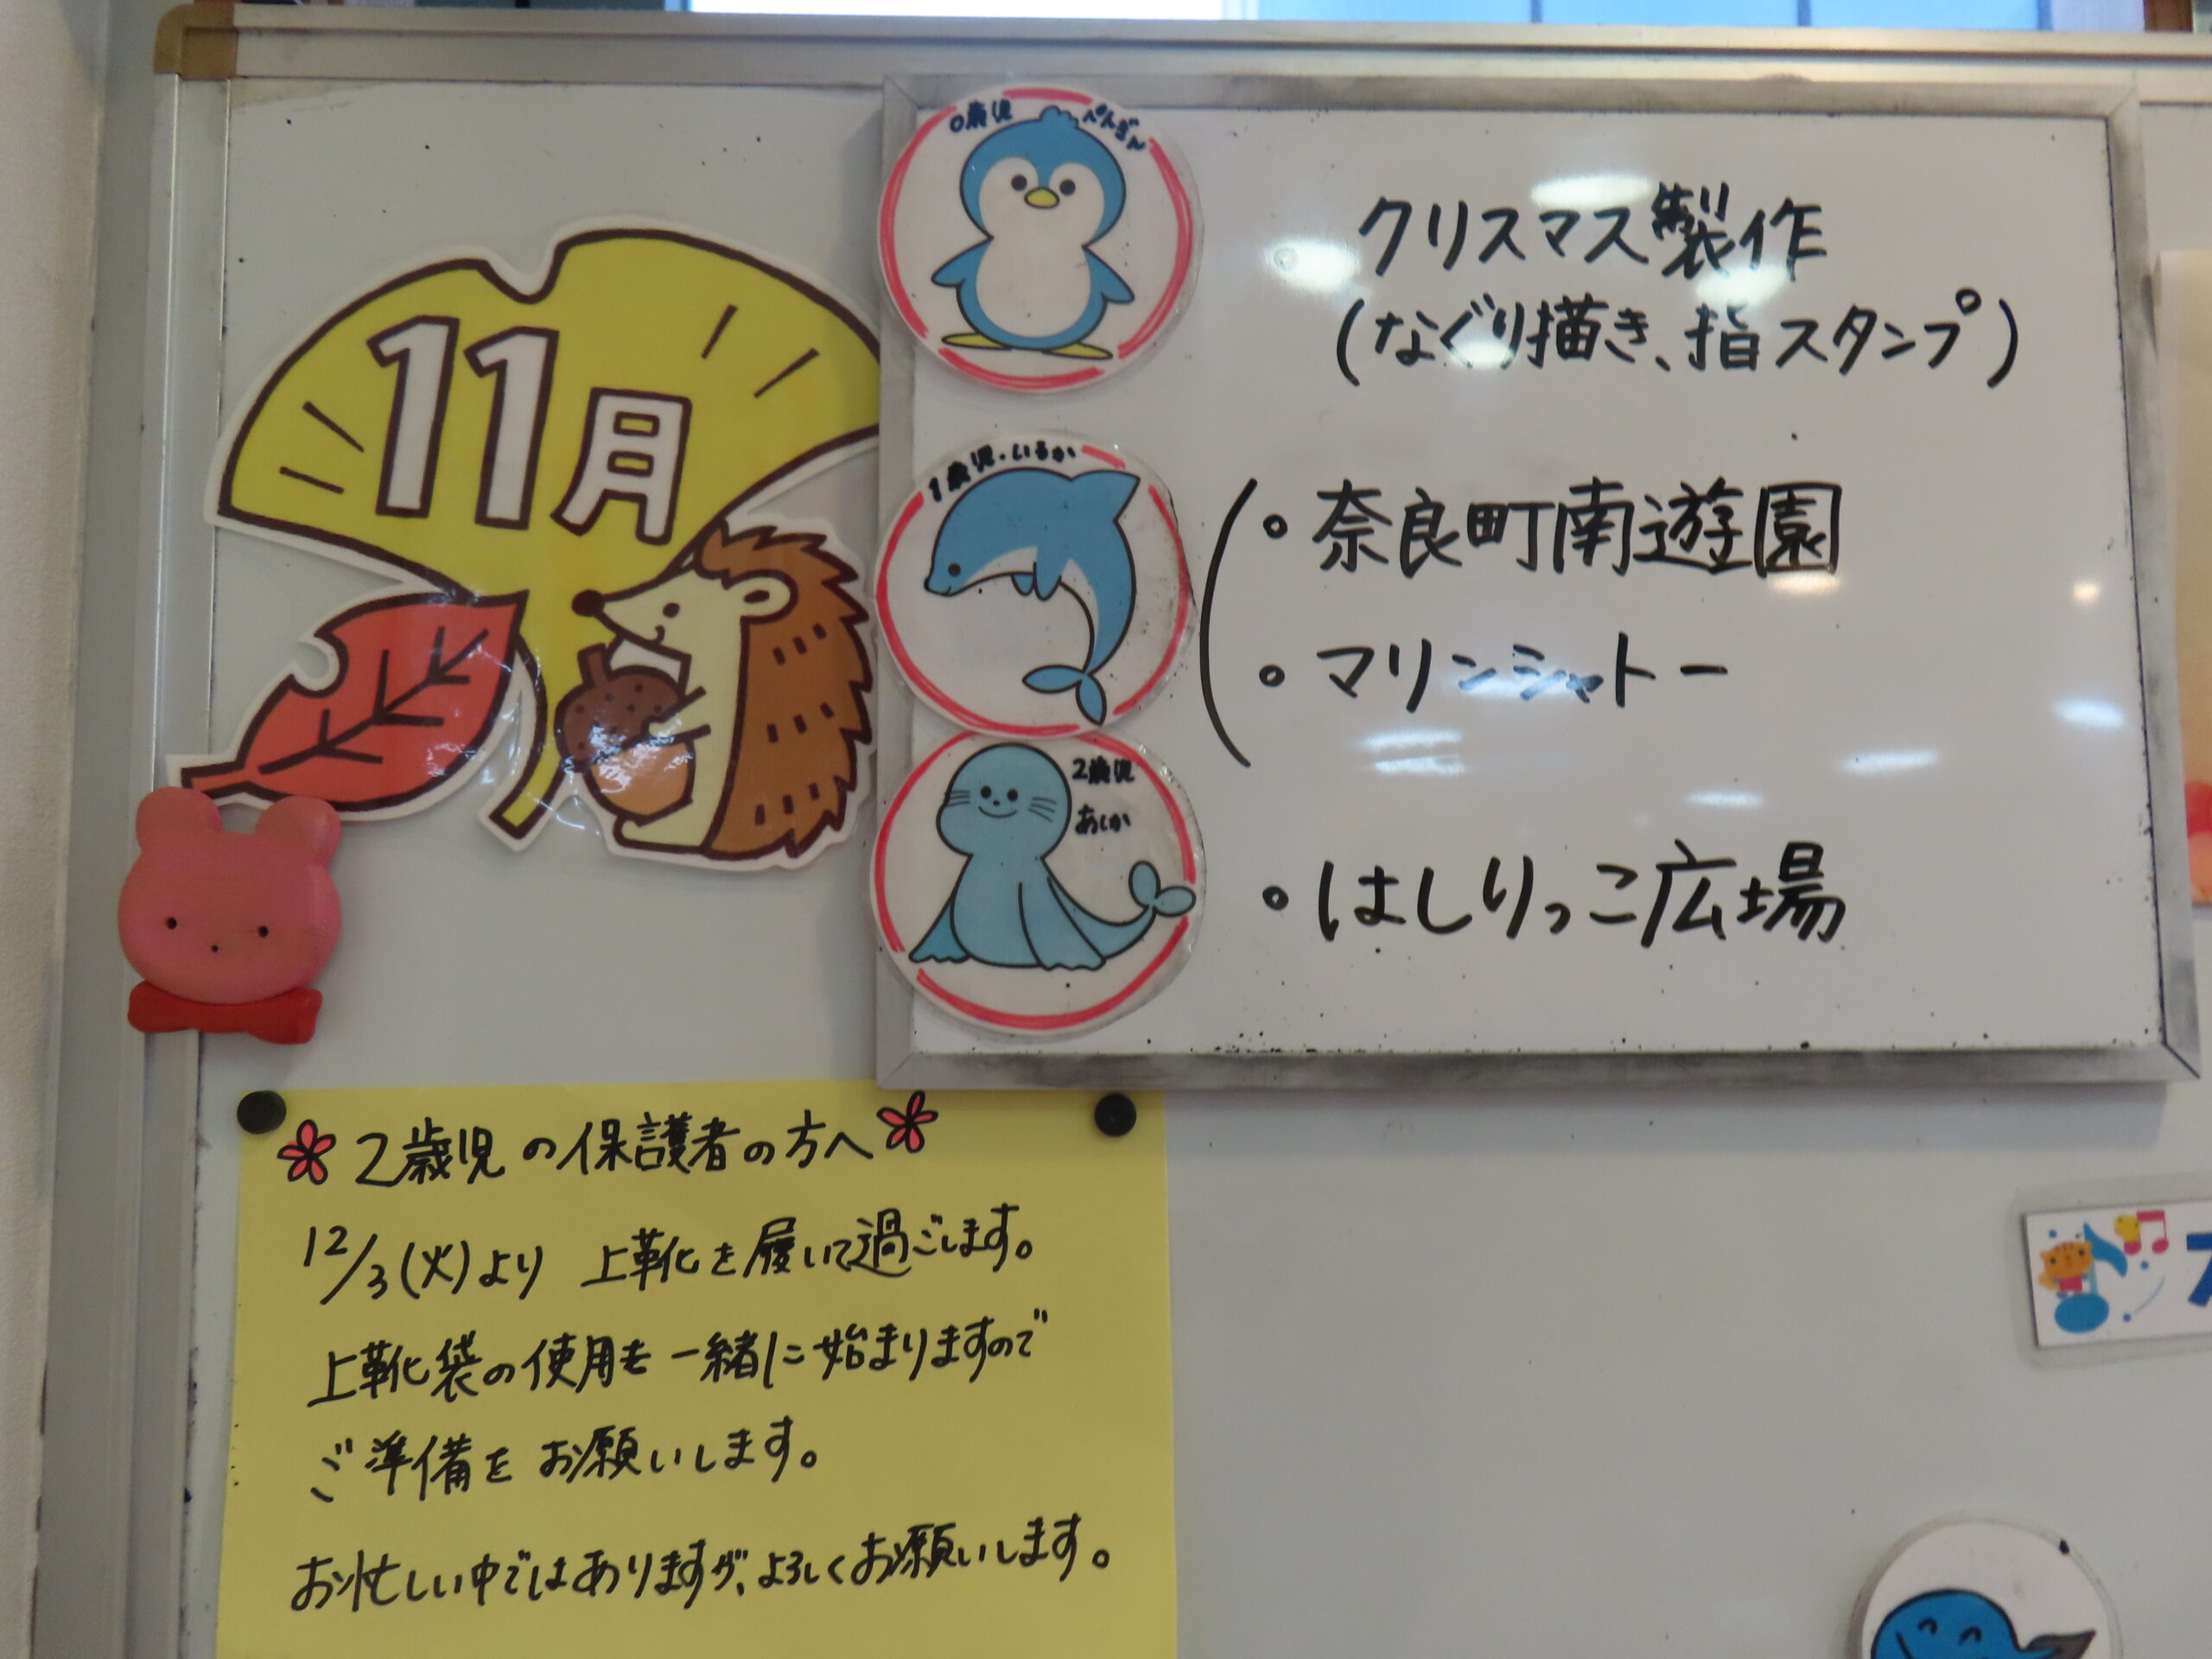 11月
0歳児 ぺんぎん
クリスマス製作
(なぐり描き、指スタンプ)
1歳児・いるか
・奈良町南遊園
・マリンシャトー
2歳児
あしか
・はしりっこ広場
2歳児の保護者の方へ
12/3(火)より 上靴を履いて過ごします。
上靴袋の使用も一緒に始まりますので
ご準備をお願いします。
お忙しい中ではありますが、よろしくお願いします。